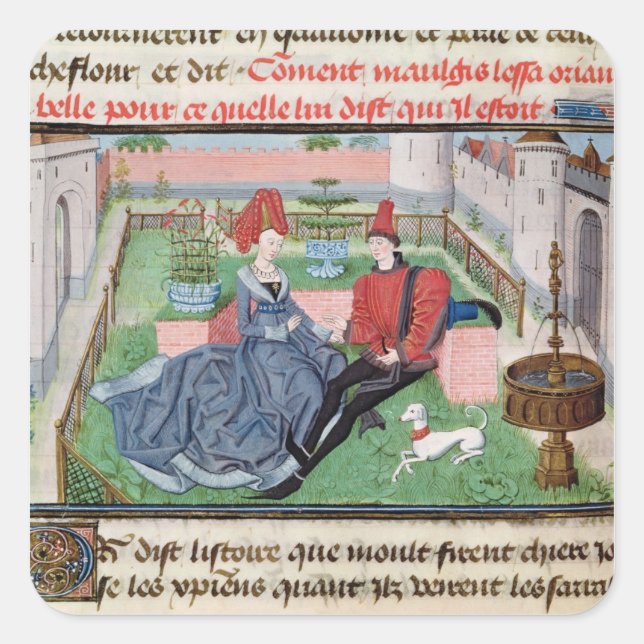 retournerent en gaudoine et parle de lenf
cheflour et dit · Cõment maulgis lessa orian
belle pour ce quelle lui dist qui Il estoit
Or dist listoire que moult firent chiere Jo
se les xp̃iens quant Ilz virent les sarra